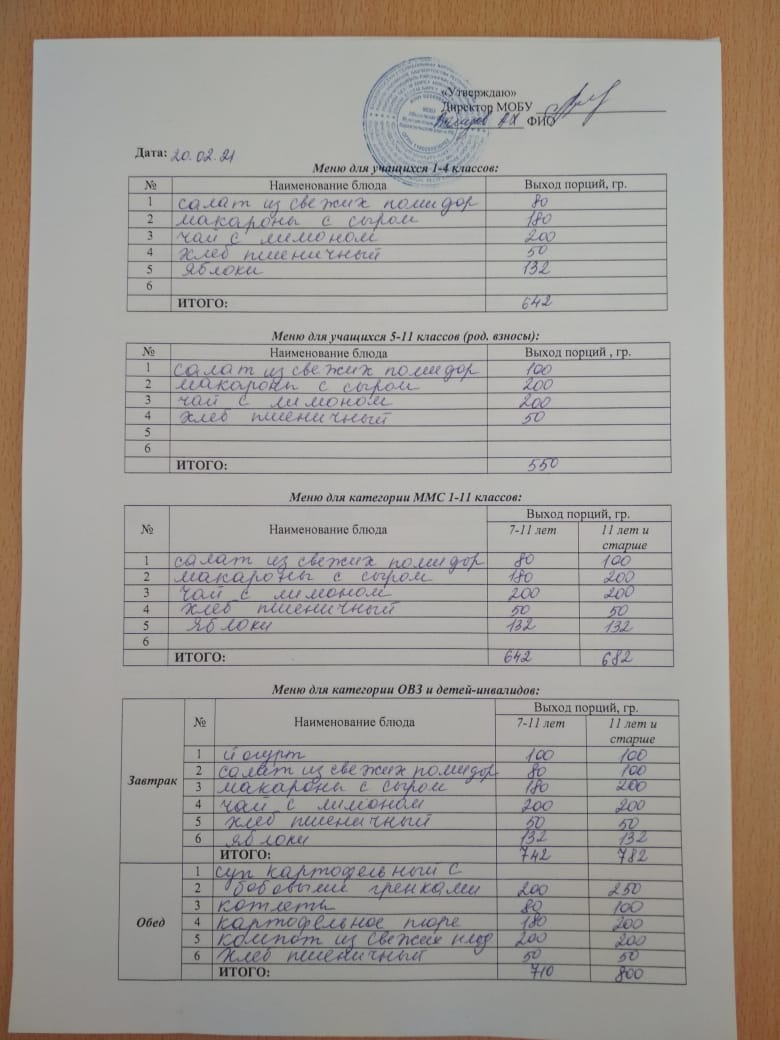 «Утверждаю»
Директор МОБУ
ФИО
Дата: 20.02.21
Меню для учащихся 1-4 классов:
№ Наименование блюда Выход порций, гр.
1 салат из свежих помидор 80
2 макароны с сыром 180
3 чай с лимоном 200
4 хлеб пшеничный 50
5 яблоки 132
6
ИТОГО: 642
Меню для учащихся 5-11 классов (род. взносы):
№ Наименование блюда Выход порций , гр.
1 салат из свежих помидор 100
2 макароны с сыром 200
3 чай с лимоном 200
4 хлеб пшеничный 50
5
6
ИТОГО: 550
Меню для категории ММС 1-11 классов:
№ Наименование блюда Выход порций, гр.
7-11 лет 11 лет и
старше
1 салат из свежих помидор 80 100
2 макароны с сыром 180 200
3 чай с лимоном 200 200
4 хлеб пшеничный 50 50
5 яблоки 132 132
6
ИТОГО: 642 682
Меню для категории ОВЗ и детей-инвалидов:
№ Наименование блюда Выход порций, гр.
7-11 лет 11 лет и
старше
Завтрак
1 йогурт 100 100
2 салат из свежих помидор 80 100
3 макароны с сыром 180 200
4 чай с лимоном 200 200
5 хлеб пшеничный 50 50
6 яблоки 132 132
ИТОГО: 742 782
Обед
1 суп картофельный с
2 бобовыми гренками 200 250
3 котлеты 80 100
4 картофельное пюре 180 200
5 компот из свежих плод 200 200
6 хлеб пшеничный 50 50
ИТОГО: 710 800